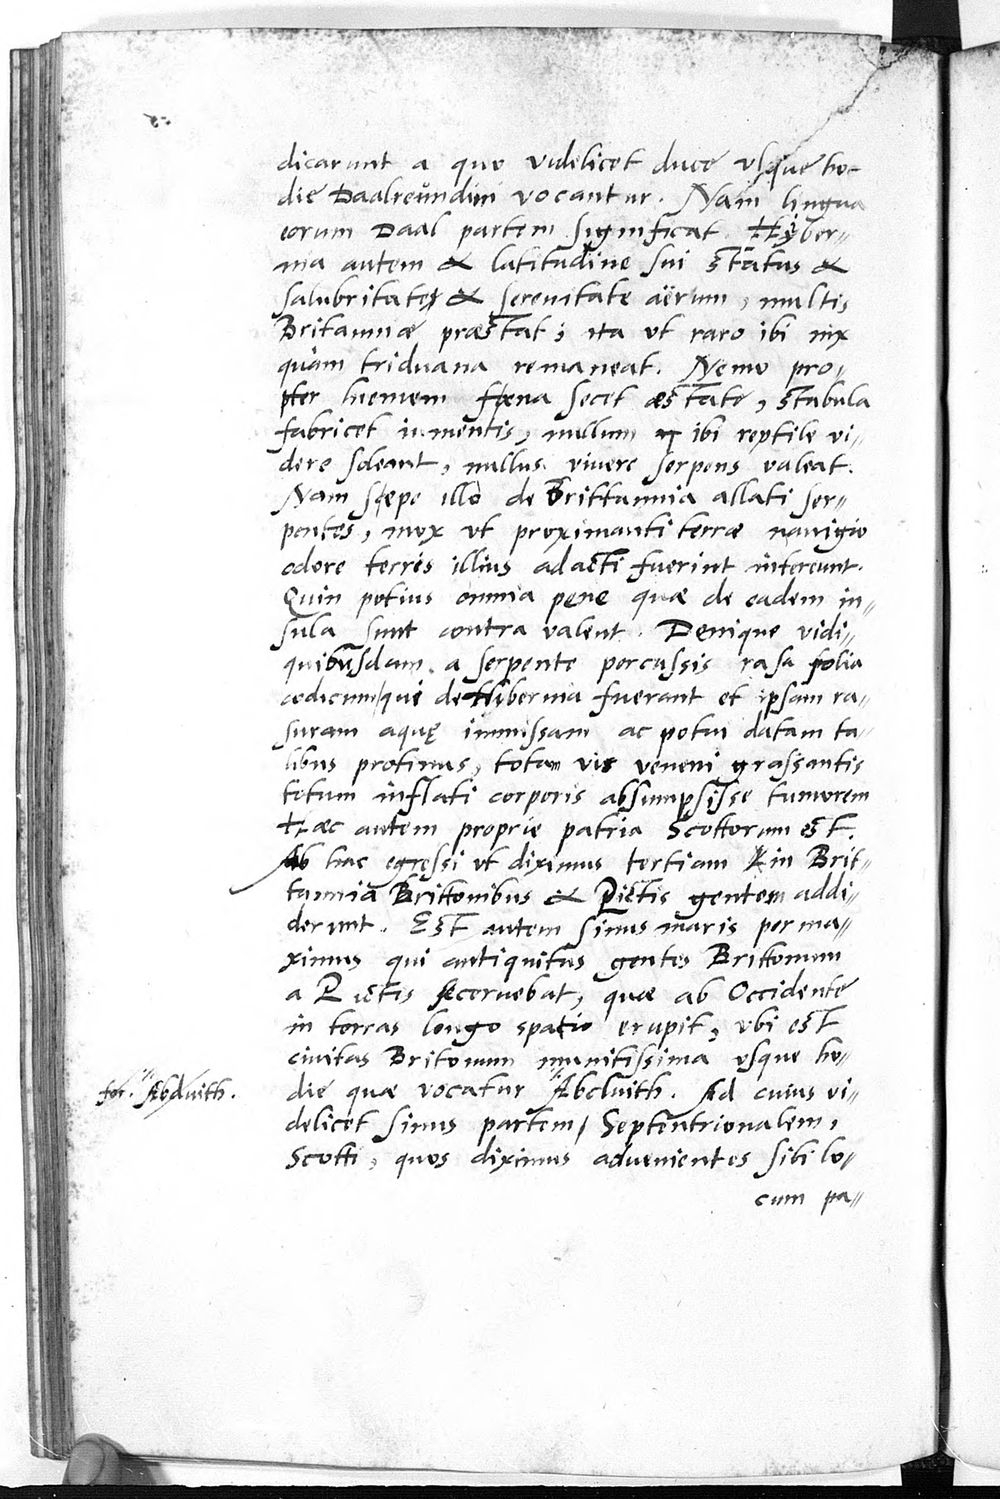 dicarunt a quo videlicet duce vsque ho-
die Daalreŭndini vocantur. Nam lingua
eorum Daal partem significat. Hyber-
nia autem & latitudine sui status &
salubritate & serenitate aërum, multis
Britanniæ præstat; ita vt raro ibi nix
quàm triduana remaneat. Nemo pro-
pter hiemem fœna secet æstate, stabula
fabricet iumentis, nullum ibi reptile vi-
dere soleant, nullus vivere serpens valeat.
Nam sæpe illò de Brittannia allati ser-
pentes, mox vt proximanti terræ navigio
odore terrés illius adacti fuerint intereunt.
Quin potius omnia pene quæ de eadem in-
sula sunt contra valent. Denique vidi-
quibusdam a serpente percussis rasa folia
codicum que de Hibernia fuerant et ipsam ra-
suram aquę immissam ac potui datam ta-
libus protinus, totam vis veneni grassantis
totum inflati corporis absumpsisse tumorem
Hæc autem proprie patria Scottorum est.
Ab hac egressi vt diximus tertiam in Brit-
tannia Brittonibus & Pictis gentem addi-
derunt. Est autem sinus maris perma-
ximus qui antiquitus gentes Brittonum
a Pictis secernebat, quæ ab Occidente
in terras longo spatio erupit, vbi est
civitas Britonum munitissima vsque ho-
die quæ vocatur Abcluith. Ad cuius vi-
delicet sinus partem Septentrionalem,
Scotti, quos diximus advenientes sibi lo-
cum pa-
for. Abduith.